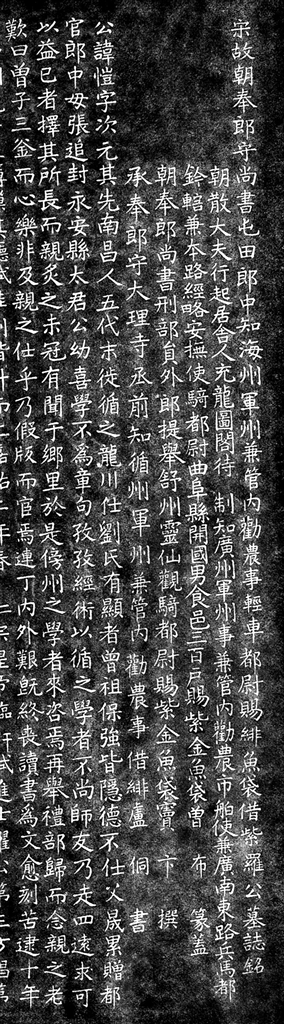 宋故朝奉郎守尚書屯田郎中知海州軍州兼管內勸農事輕車都尉賜緋魚袋借紫羅公墓誌銘
朝散大夫行起居舍人充龍圖閣待制知廣州軍州事兼管內勸農市舶使兼廣南東路兵馬都
鈐轄兼本路經略安撫使騎都尉曲阜縣開國男食邑三百戶賜紫金魚袋曾布篆蓋
朝奉郎尚書刑部員外郎提舉舒州靈仙觀騎都尉賜紫金魚袋竇卞撰
承奉郎守大理寺丞前知循州軍州兼管內勸農事借緋盧侗書
公諱愷字次元其先南昌人五代末徙循之龍川仕劉氏有顯者曾祖保強皆隱德不仕父晟累贈都
官郎中母張追封永安縣太君公幼喜學不為章句孜孜經術以循之學者不尚師友乃走四遠求可
以益己者擇其所長而親炙之未冠有聞于鄉里於是傍州之學者來咨焉再舉禮部歸而念親之老
歎曰曾子三釜而心樂非及親之仕乎乃假版而官焉連丁內外艱既終喪讀書為文愈刻苦逮十年